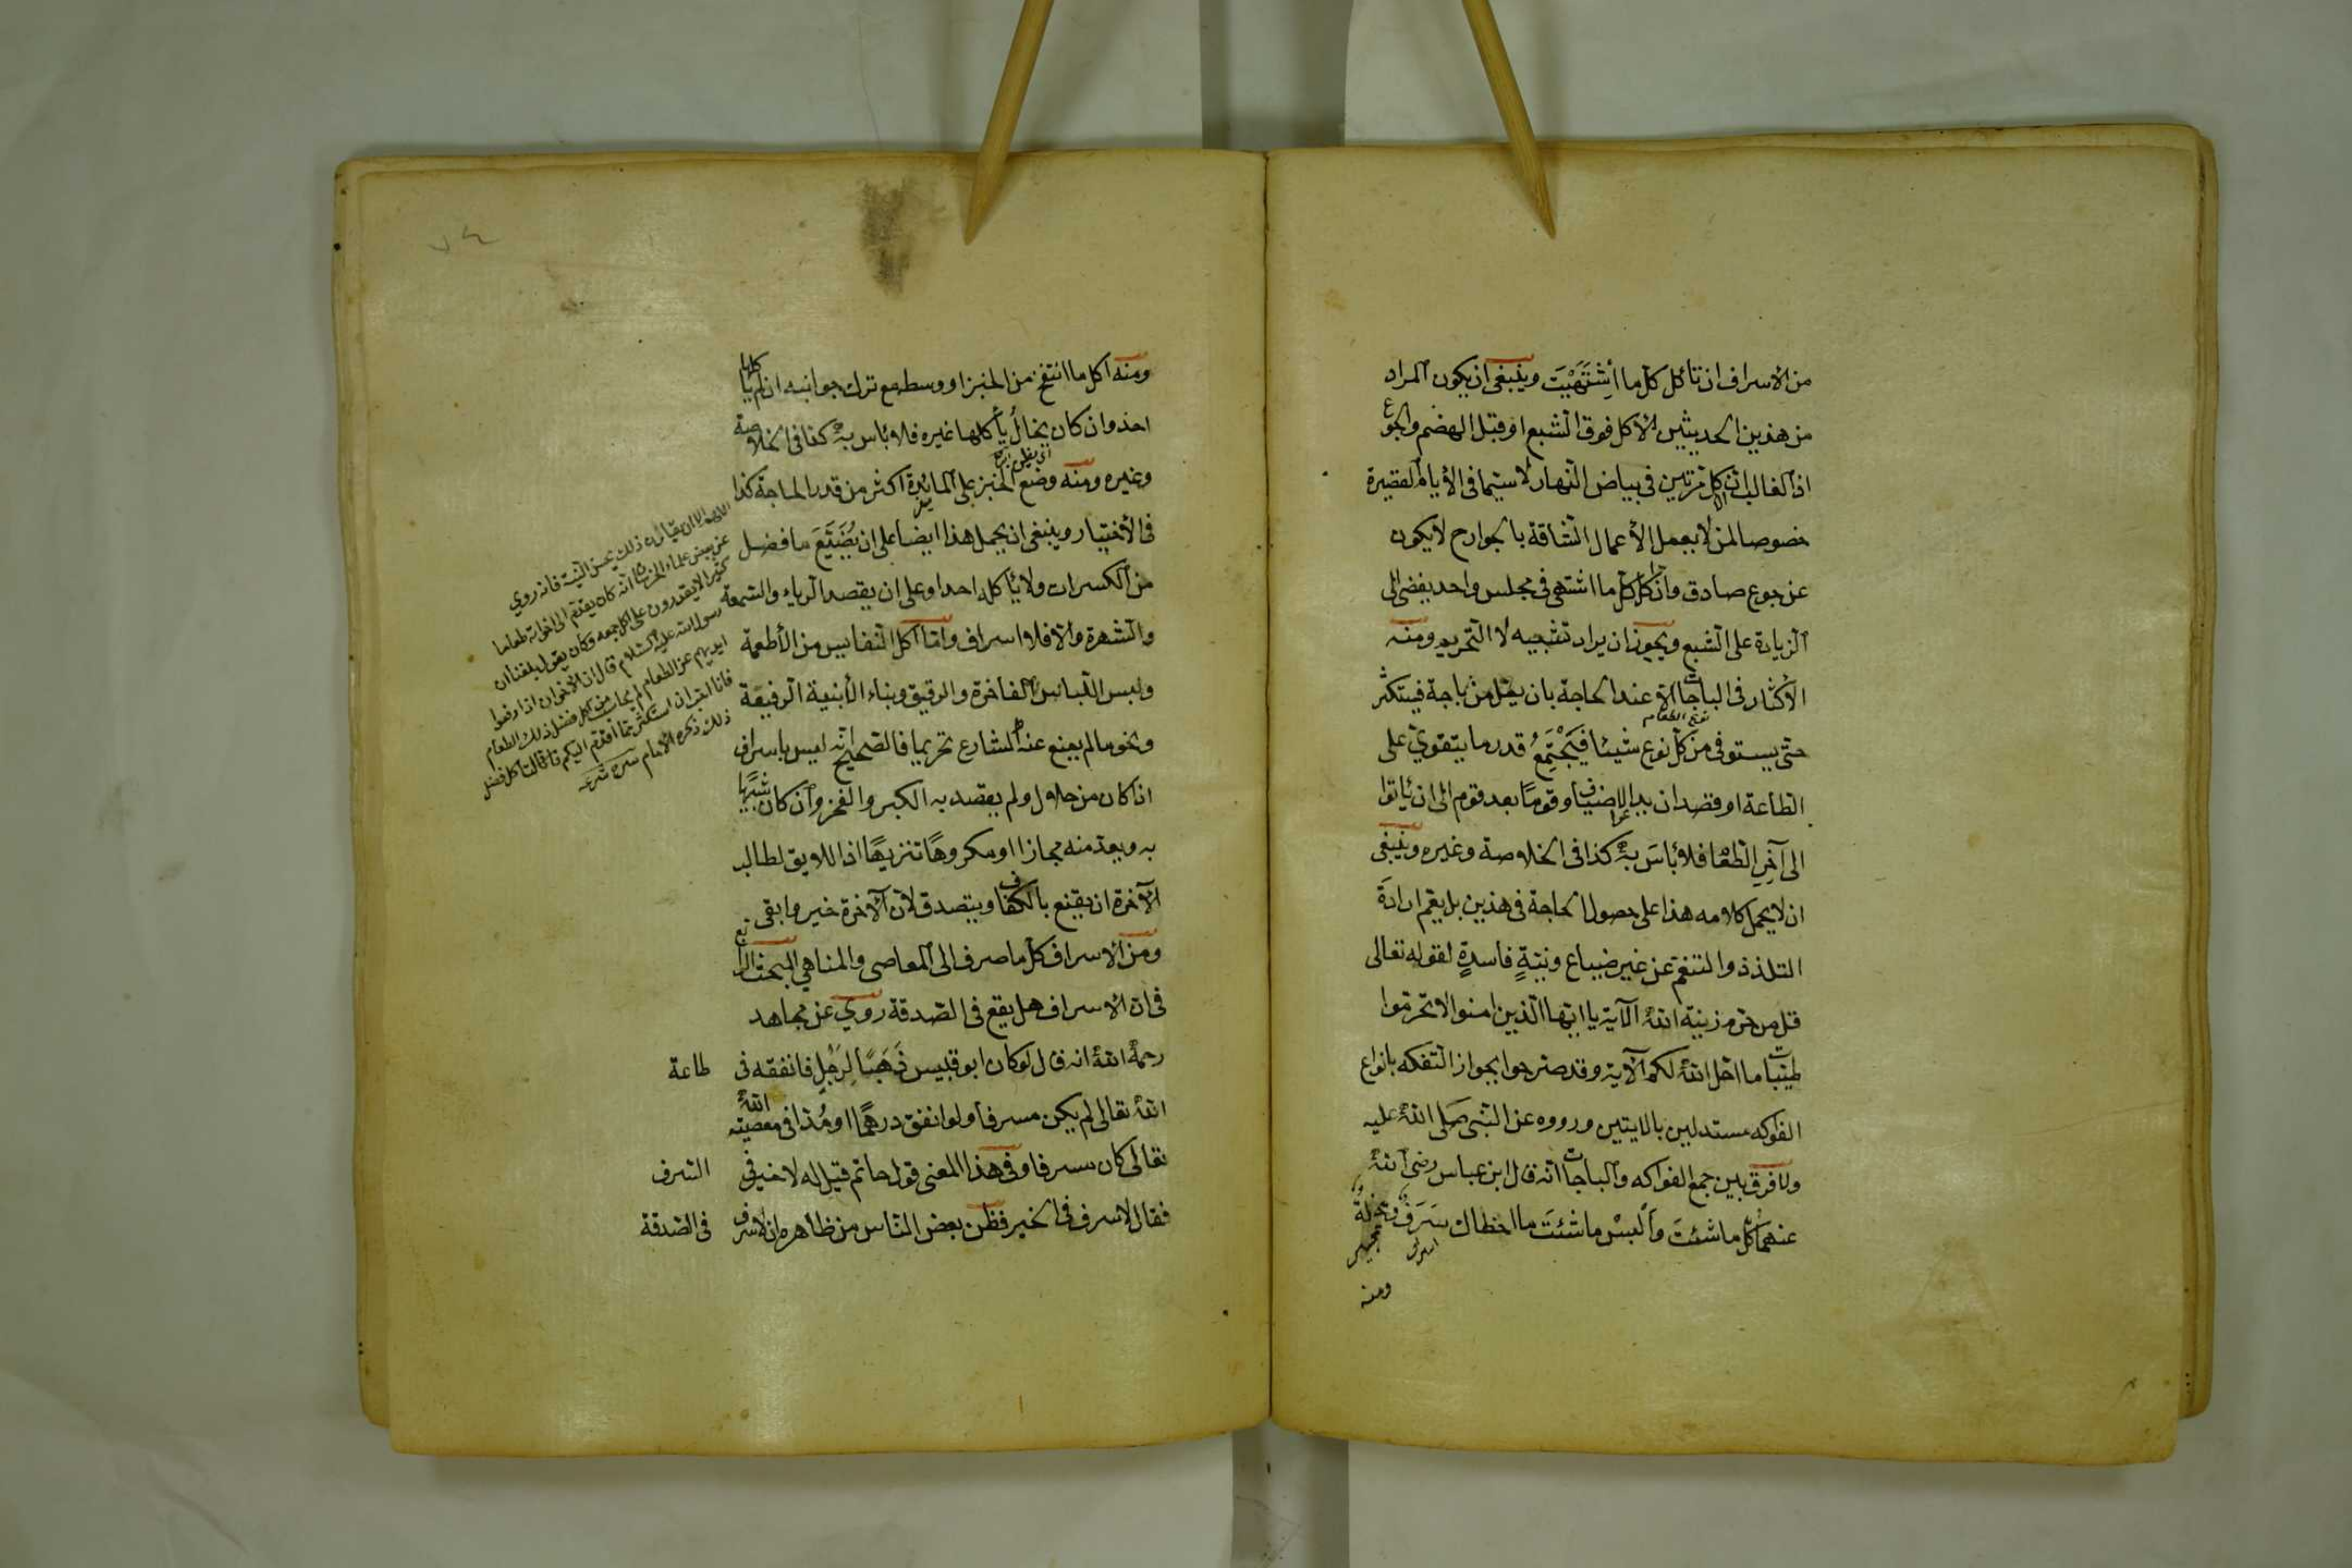 من الاسراف ان تأكل كل ما اشتهيت وينبغى ان يكون المراد
من هذين الحديثين الاكل فوق الشبع او قبل الهضم والجوع
اذ الغالب ان الاكل مرتين فى بياض النهار لا سيما فى الأيام القصيرة
خصوصا لمن لا يعمل الأعمال الشاقة بالجوارح لا يكون
عن جوع صادق وان اكل كل ما اشتهى فى مجلس واحد يفضى الى
الزيادة على الشبع ويجوز ان يراد تشبيه لا التحريم ومنه
الاكثار فى الباجات الا عند الحاجة بان يمل من باجة فيستكثر
حتى يستوفى من كل نوع شيئا فيجتمع قدر ما يتقوى على
الطاعة او قصد ان يدعوا الاضياف قوما بعد قوم الى ان يأتوا
الى آخر الطعام فلا بأس به كذا فى الخلاصة وغيره وينبغى
ان لا يحمل كلامه هذا على حصول الحاجة فى هذين بل يعم ارادة
التلذذ والتنعم عن غير ضياع ونية فاسدة لقوله تعالى
قل من حرم زينة الله الآية يا ايها الذين امنوا لا تحرموا
طيبات ما احل الله لكم الآية وقد صرحوا بجواز التفكه بانواع
الفواكه مستدلين بالايتين ورووه عن النبى صلى الله عليه
ولا فرق بين جمع الفواكه والباجات انه قال ابن عباس رضى الله
عنهما كل ما شئت والبس ما شئت ما اخطاك سرف ومخيلة
ومنه
ومنه اكل ما انتفخ من الخبز او وسطه مع ترك جوانبه ان لم يأكلها
احد وان كان بحال يأكلها غيره فلا بأس به كما فى الخلاصة
وغيره ومنه وضع الخبز على المائدة اكثر من قدر الحاجة كذا
فى الأختيار وينبغى ان يحمل هذا ايضا على ان يضيع ما فضل
من الكسرات ولا يأكله احد او على ان يقصد الرياء والسمعة
والشهرة والا فلا اسراف واما اكل النفايس من الأطعمة
ولبس اللباس الفاخرة والرقيق وبناء الأبنية الرفيعة
ونحوها لم يمنع عنه الشارع تحريما فالصحيح انه ليس باسراف
اذا كان من حلال ولم يقصد به الكبر والفخر وان كان شبيها
به ويعد منه مجازا او مكروها تنزيها اذ اللايق لطالب
الآخرة ان يقنع بالكفاف ويتصدق لان الآخرة خير وابقى
ومن الاسراف كل ما صرف الى المعاصى والمناهي المبحث الرابع
فى ان الاسراف هل يقع فى الصدقة روي عن مجاهد
رحمه الله انه قال لو كان ابو قبيس ذهبا لرجل فانفقه فى طاعة
الله تعالى لم يكن مسرفا ولو انفق درهما او مدا فى معصية الله
تعالى كان مسرفا وفى هذا المعنى قول حاتم قيل له لا خير فى السرف
فقال لا سرف فى الخير فظن بعض الناس من ظاهره ان لا سرف فى الصدقة
اللهم الا ان يقارن ذلك بحسن النية فانه روي
عن بعض علماء انه كان يقدم الى اخوانه طعاما
كثيرا لا يقدرون على اكل جميعه وكان يقول بلغنا ان
رسول الله عليه السلام قال ان الاخوان اذا رفعوا
ايديهم عن الطعام لم يحاسب من اكل فضل ذلك الطعام
فانا احب ان استكثر مما اقدم اليكم
ذلك ذكره الامام